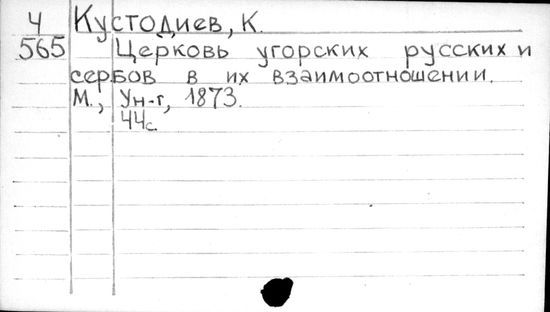 Ч Кустодиев, К.
565 Церковь угорских русских и
сербов в их взаимоотношении.
М., Ун-т, 1873.
44с.